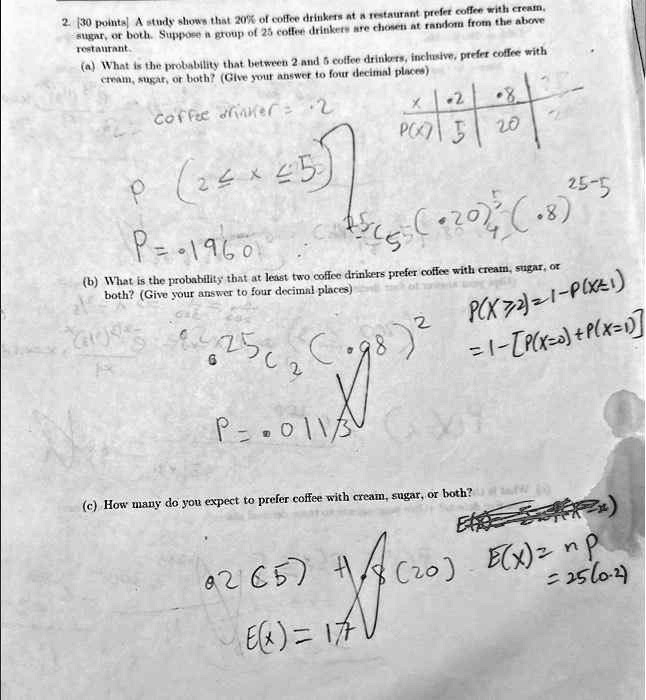 2. [30 points] A study shows that 20% of coffee drinkers at a restaurant prefer coffee with cream,
sugar, or both. Suppose a group of 25 coffee drinkers are chosen at random from the above
restaurant.
(a) What is the probability that between 2 and 5 coffee drinkers, inclusive, prefer coffee with
cream, sugar, or both? (Give your answer to four decimal places)
coffee drinker = .2
x | .2 | .8
P(x) | 5 | 20
P (2 ≤ x ≤ 5)
25C5 (.20)^5 (.8)^25-5
P = .1960
(b) What is the probability that at least two coffee drinkers prefer coffee with cream, sugar, or
both? (Give your answer to four decimal places)
P(X ≥ 2) = 1 - P(X ≤ 1)
= 1 - [P(X=0) + P(X=1)]
25C2 (.98)^2
P = .0113
(c) How many do you expect to prefer coffee with cream, sugar, or both?
E(X) = np
= 25(0.2)
.2 (5) + .8 (20)
E(x) = 17